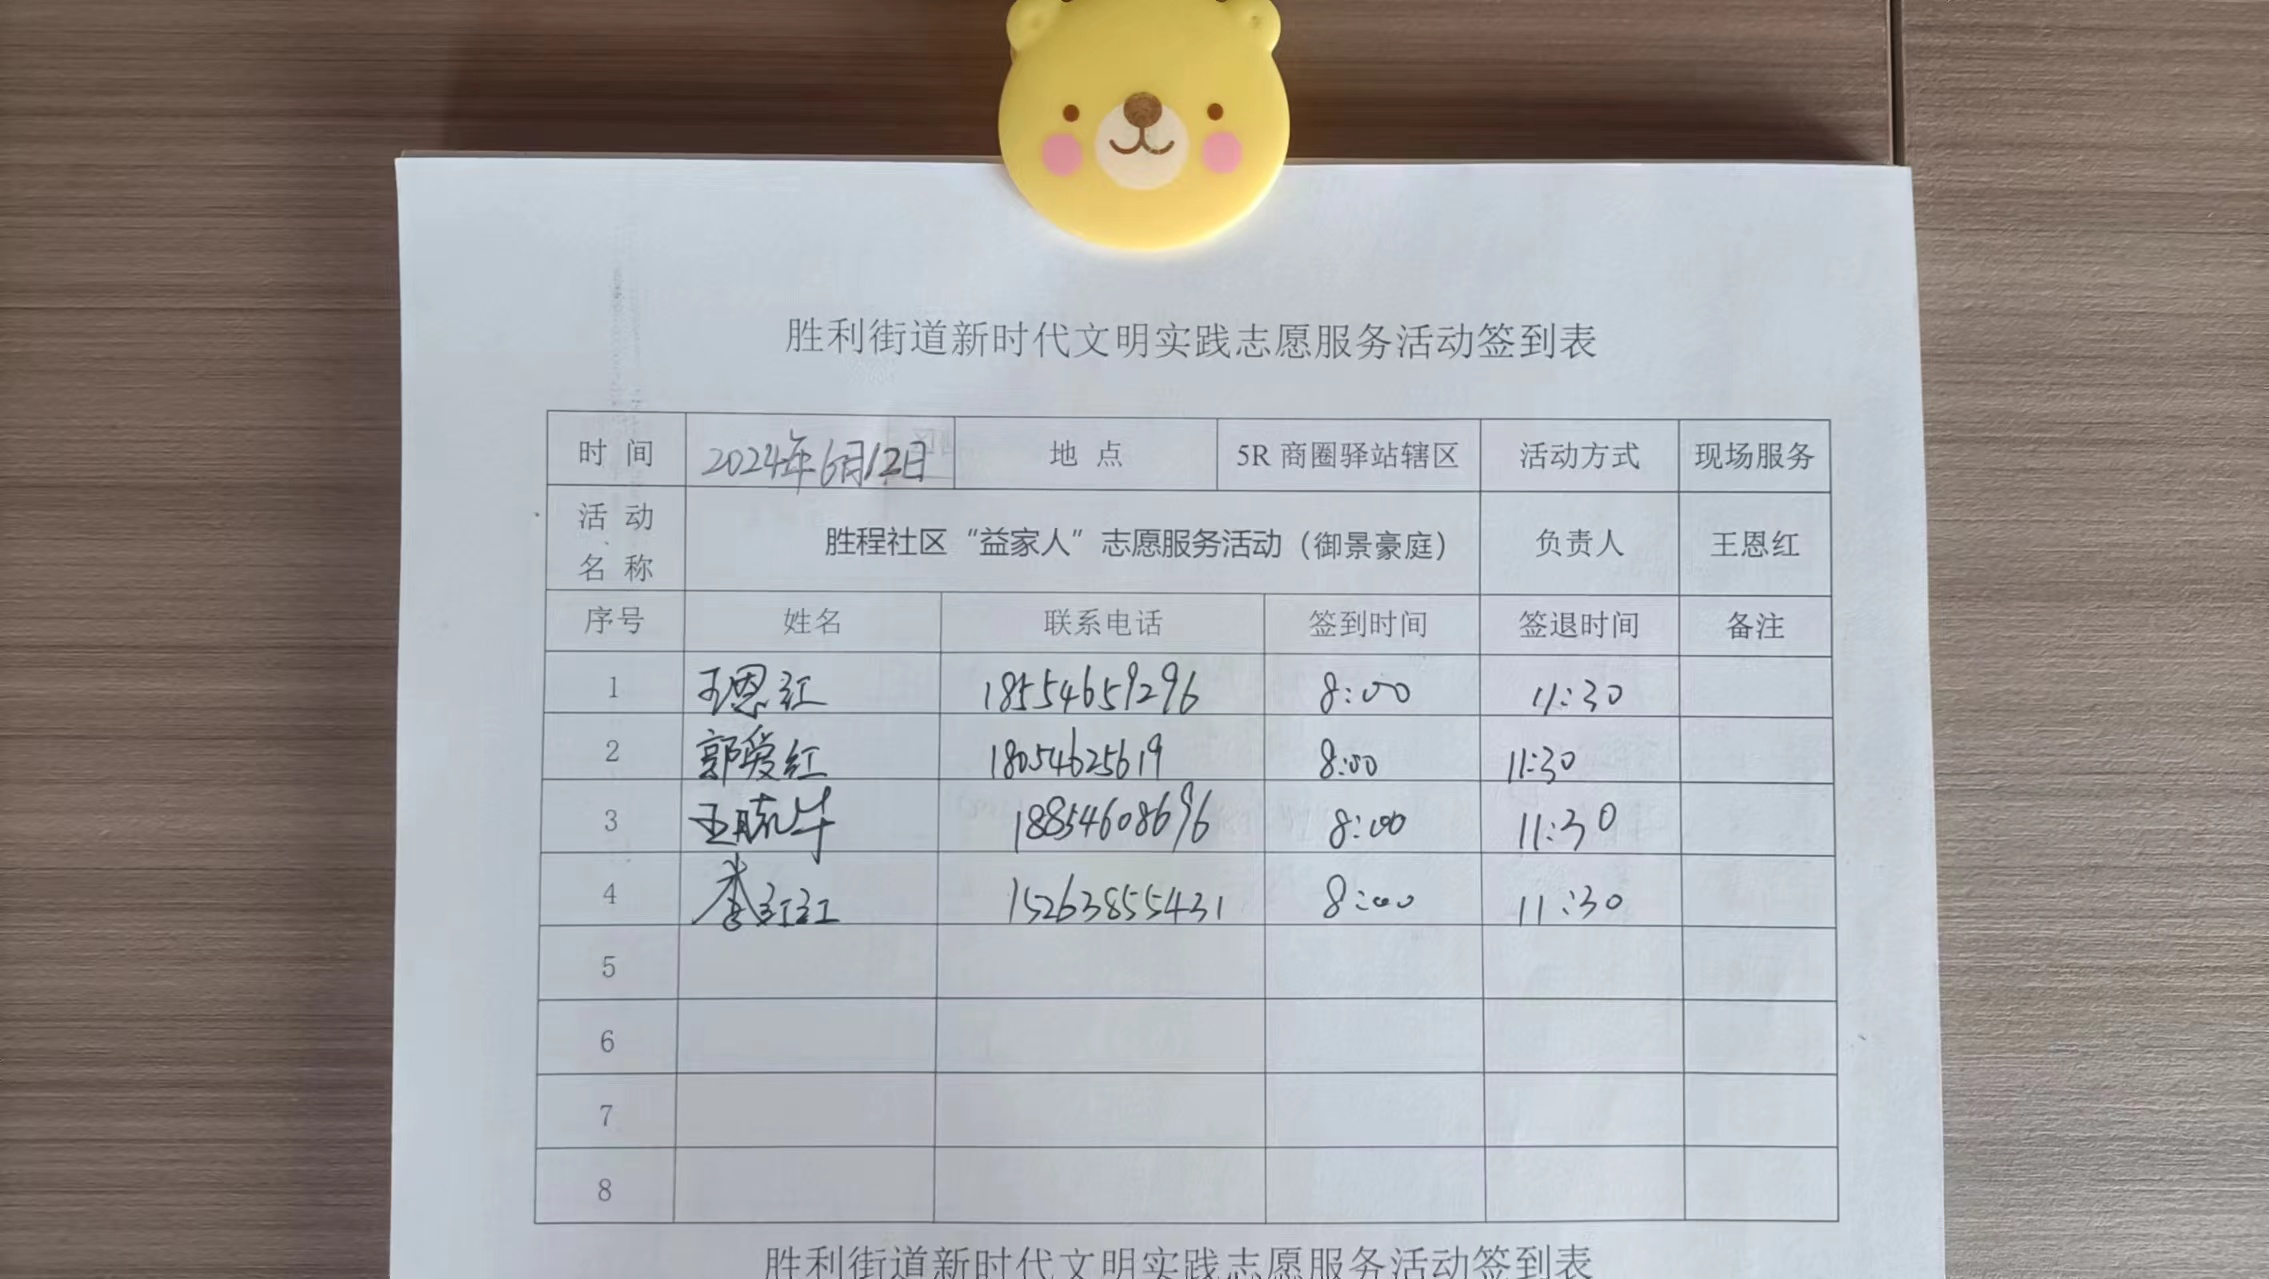 胜利街道新时代文明实践志愿服务活动签到表
时 间 2024年6月12日 地 点 5R 商圈驿站辖区 活动方式 现场服务
活 动 名 称 胜程社区“益家人”志愿服务活动（御景豪庭） 负责人 王恩红
序号 姓名 联系电话 签到时间 签退时间 备注
1 王恩红 18554659296 8:00 11:30
2 郭爱红 18054625619 8:00 11:30
3 王毓华 18854608696 8:00 11:30
4 李红红 15263855431 8:00 11:30
5
6
7
8
胜利街道新时代文明实践志愿服务活动签到表